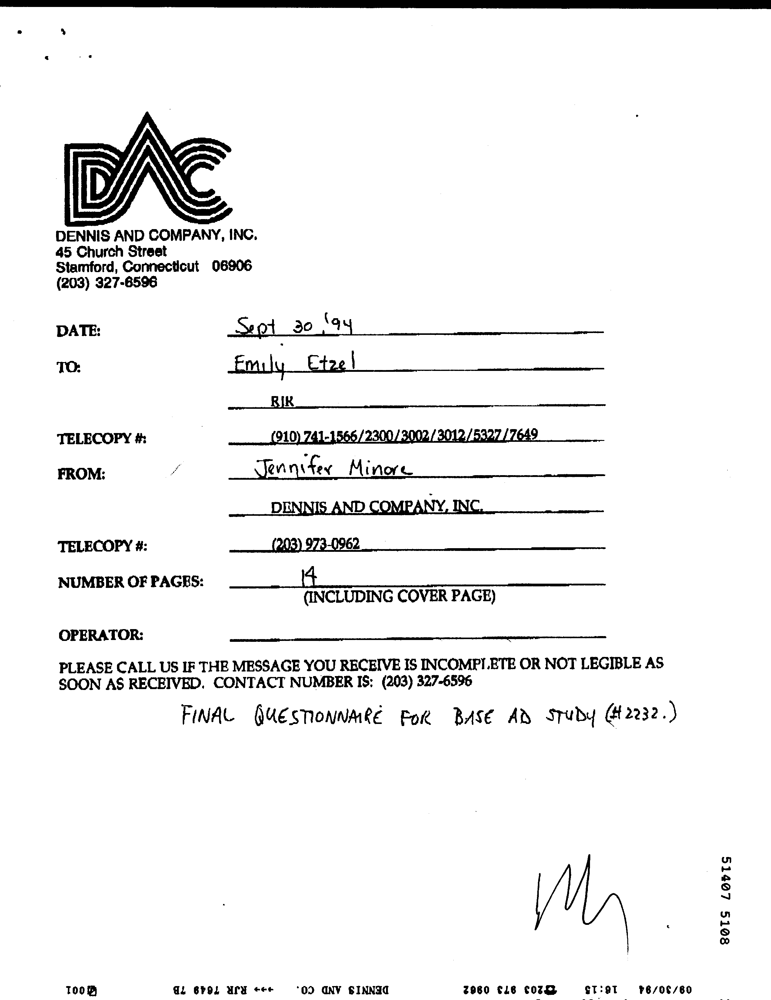 DAC
DENNIS AND COMPANY, INC.
45 Church Street
Stamford, Connecticut 06906
(203) 327-6596
DATE: Sept 30, '94
TO: Emily Etzel
RJR
TELECOPY #: (910) 741-1566/2300/3002/3012/5327/7649
FROM: Jennifer Minore
DENNIS AND COMPANY, INC.
TELECOPY #: (203) 973-0962
NUMBER OF PAGES: 14
(INCLUDING COVER PAGE)
OPERATOR:
PLEASE CALL US IF THE MESSAGE YOU RECEIVE IS INCOMPLETE OR NOT LEGIBLE AS
SOON AS RECEIVED. CONTACT NUMBER IS: (203) 327-6596
FINAL QUESTIONNAIRE FOR BASE AD STUDY (#2232.)
51407 5108
09/30/94 16:15 ☎203 973 0962 DENNIS AND CO. +++ RJR 7649 7B 001